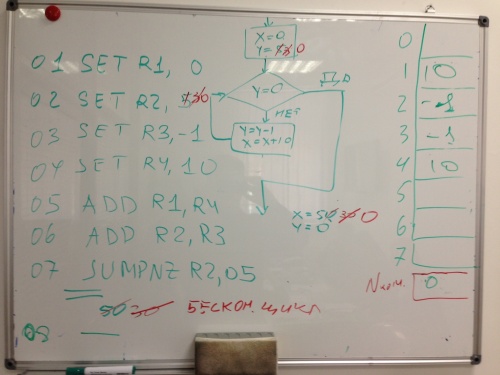 01 SET R1, 0
02 SET R2, 0
03 SET R3, -1
04 SET R4, 10
05 ADD R1, R4
06 ADD R2, R3
07 JUMPNZ R2, 05
50 30 БЕСКОН. ЦИКЛ
08 —
X=0
Y= 0
Y=0
ДА
НЕТ
Y=Y-1
X=X+10
X=50 30 0
Y=0
0
1 10
2 -1
3 -1
4 10
5
6
7
0